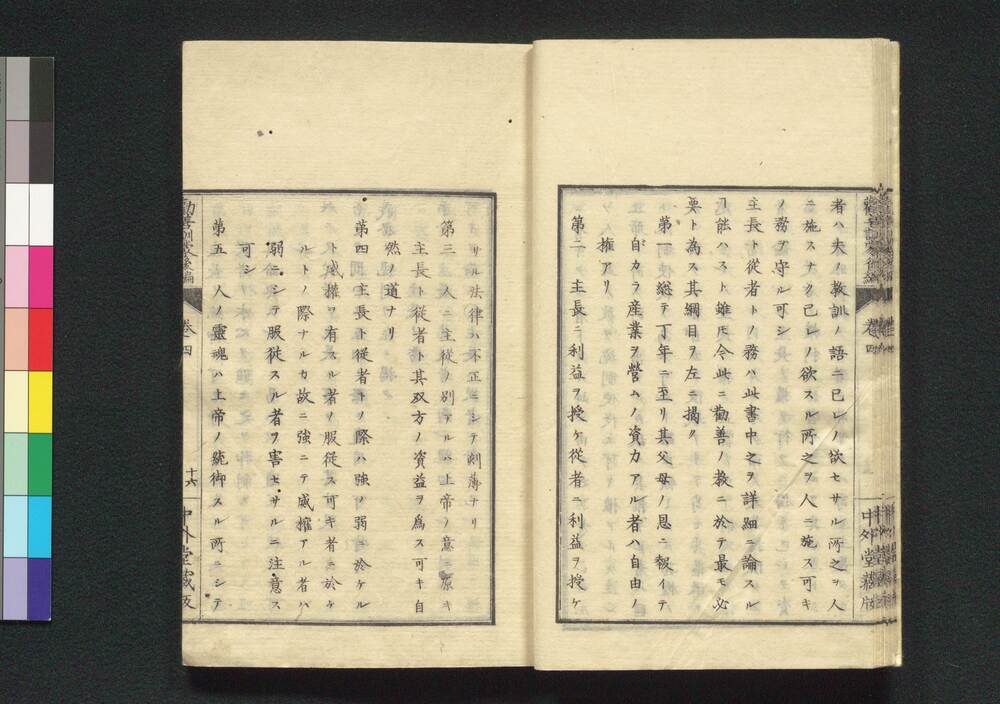 者ハ夫ノ教訓ノ語ニ已レノ欲セサル所之ヲ人
ニ施スナク已レノ欲スル所之ヲ人ニ施ス可キ
ノ務ヲ守ル可シ
主長ト從者トノ務ハ此書中之ヲ詳細ニ論スル
ヿ能ハスト雖𪜈今此ニ勸善ノ教ニ於テ最モ必
要ト為ス其綱目ヲ左ニ揭ク
第一 總テ丁年ニ至リ其父母ノ恩ニ報イテ
自カラ産業ヲ營ムノ資力アル者ハ自由ノ
權アリ
第二 主長ニ利益ヲ授ケ從者ニ利益ヲ授ケ
サル法律ハ不正ニシテ刻薄ナリ
第三 人ニ主從ノ別アルハ上帝ノ意ニ原キ
主長ト從者ト其双方ノ資益ヲ為ス可キ自
然ノ道ナリ
第四 主長ト從者トノ際ハ強ノ弱ニ於ケル
ト威權ヲ有スル者ノ服從ス可キ者ニ於ケ
ルトノ際ナルカ故ニ強ニテ威權アル者ハ
弱ニシテ服從スル者ヲ害セサルニ注意ス
可シ
第五 人ノ靈魂ハ上帝ノ統御スル所ニシテ
勸善訓蒙後編
卷四
十六
中外堂藏版